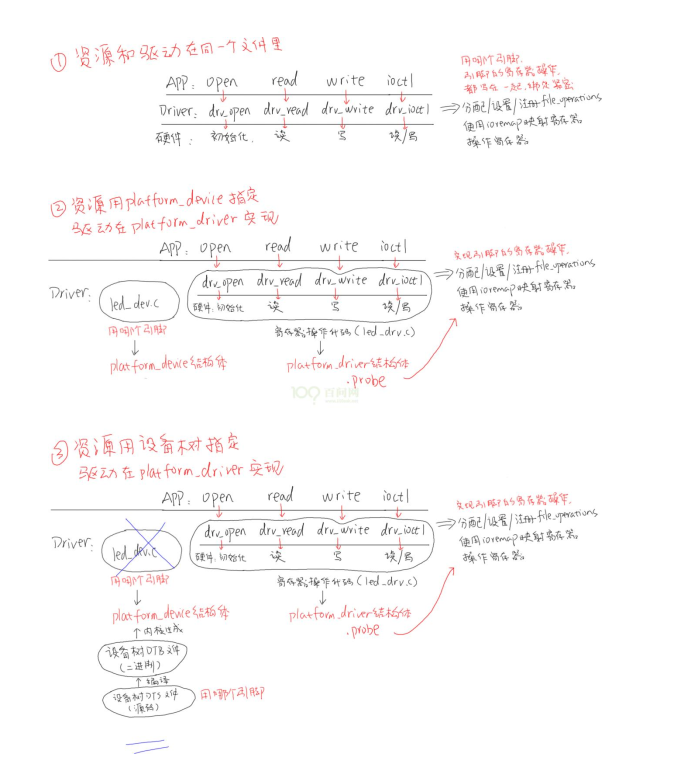 ① 资源和驱动在同一个文件里
用哪个引脚,
引脚的寄存器操作,
都写在一起,绑定紧密
APP: open read write ioctl
Driver: drv_open drv_read drv_write drv_ioctl
硬件: 初始化. 读 写 读/写
⇒分配/设置/注册file_operations
使用ioremap映射寄存器
操作寄存器
② 资源用platform_device指定
驱动在platform_driver实现
APP: open read write ioctl
Driver: led_dev.c
drv_open drv_read drv_write drv_ioctl
硬件:初始化 读 写 读/写
实现引脚的寄存器操作,
⇒分配/设置/注册file_operations
使用ioremap映射寄存器
操作寄存器
用哪个引脚
寄存器操作代码(led_drv.c)
platform_device结构体
platform_driver结构体
.probe
100 百问网
③ 资源用设备树指定
驱动在platform_driver实现
APP: open read write ioctl
Driver: led_dev.c
drv_open drv_read drv_write drv_ioctl
硬件:初始化 读 写 读/写
实现引脚的寄存器操作,
⇒分配/设置/注册file_operations
使用ioremap映射寄存器
操作寄存器
用哪个引脚
寄存器操作代码(led_drv.c)
platform_device结构体
platform_driver结构体
.probe
内核生成
设备树DTB文件
(二进制)
编译
设备树DTS文件
(源码)
用哪个引脚